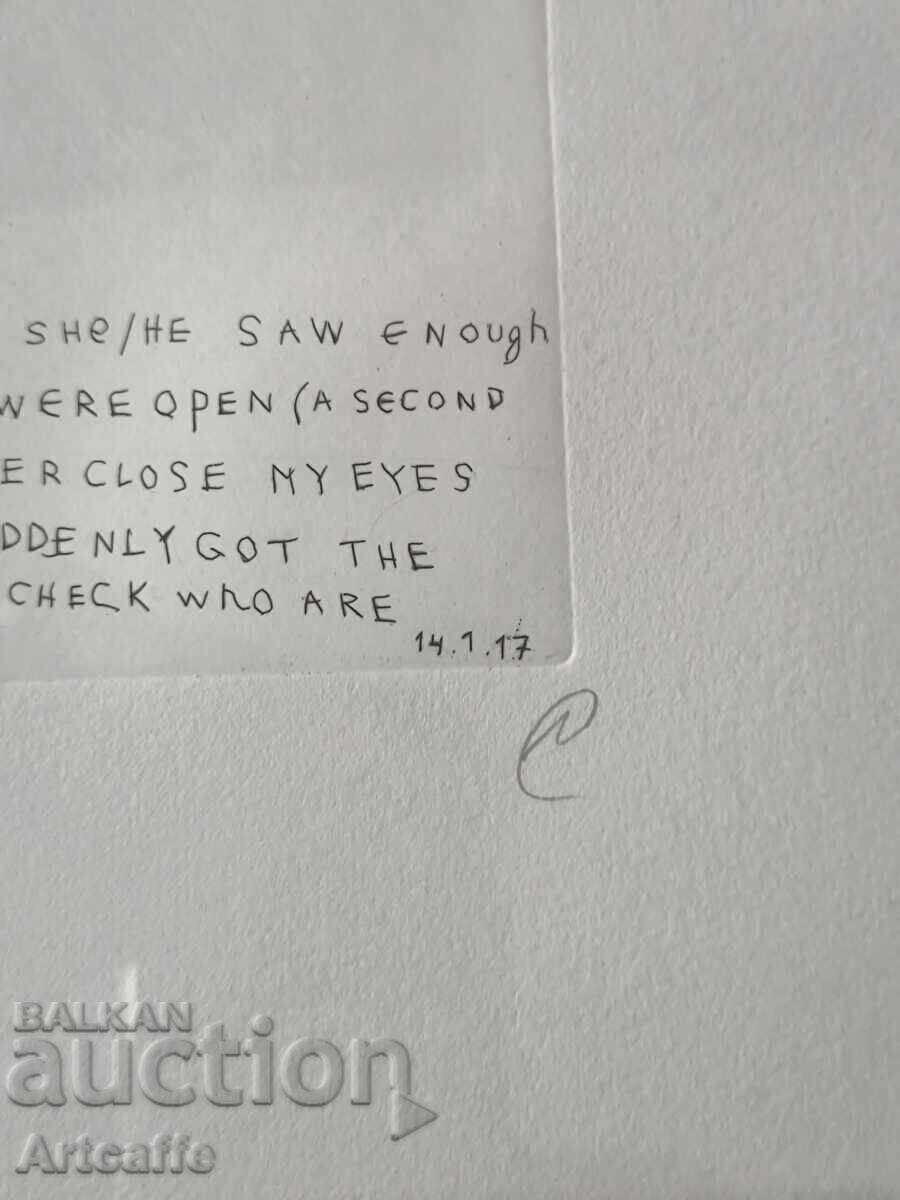 SHe/HE SAW ENOugh
WERE OPEN (A SeCOND
ER CLOSE MY EYES
DDENLY GOT THE
CHECK WhO ARE
14.1.17
BALKAN
auction
Artcaffe